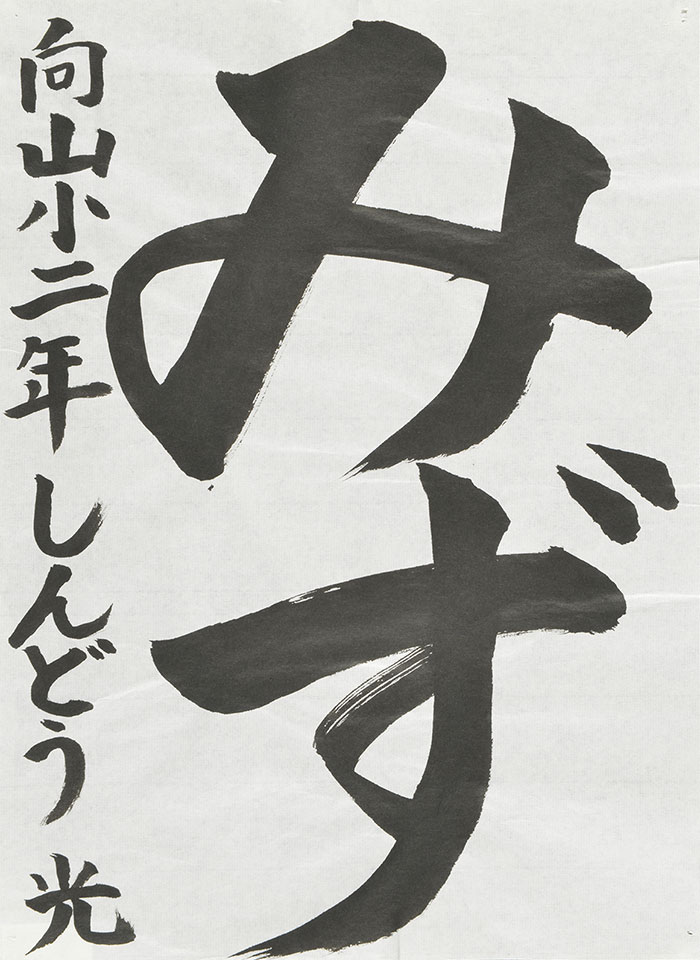 みず
向山小二年 しんどう 光